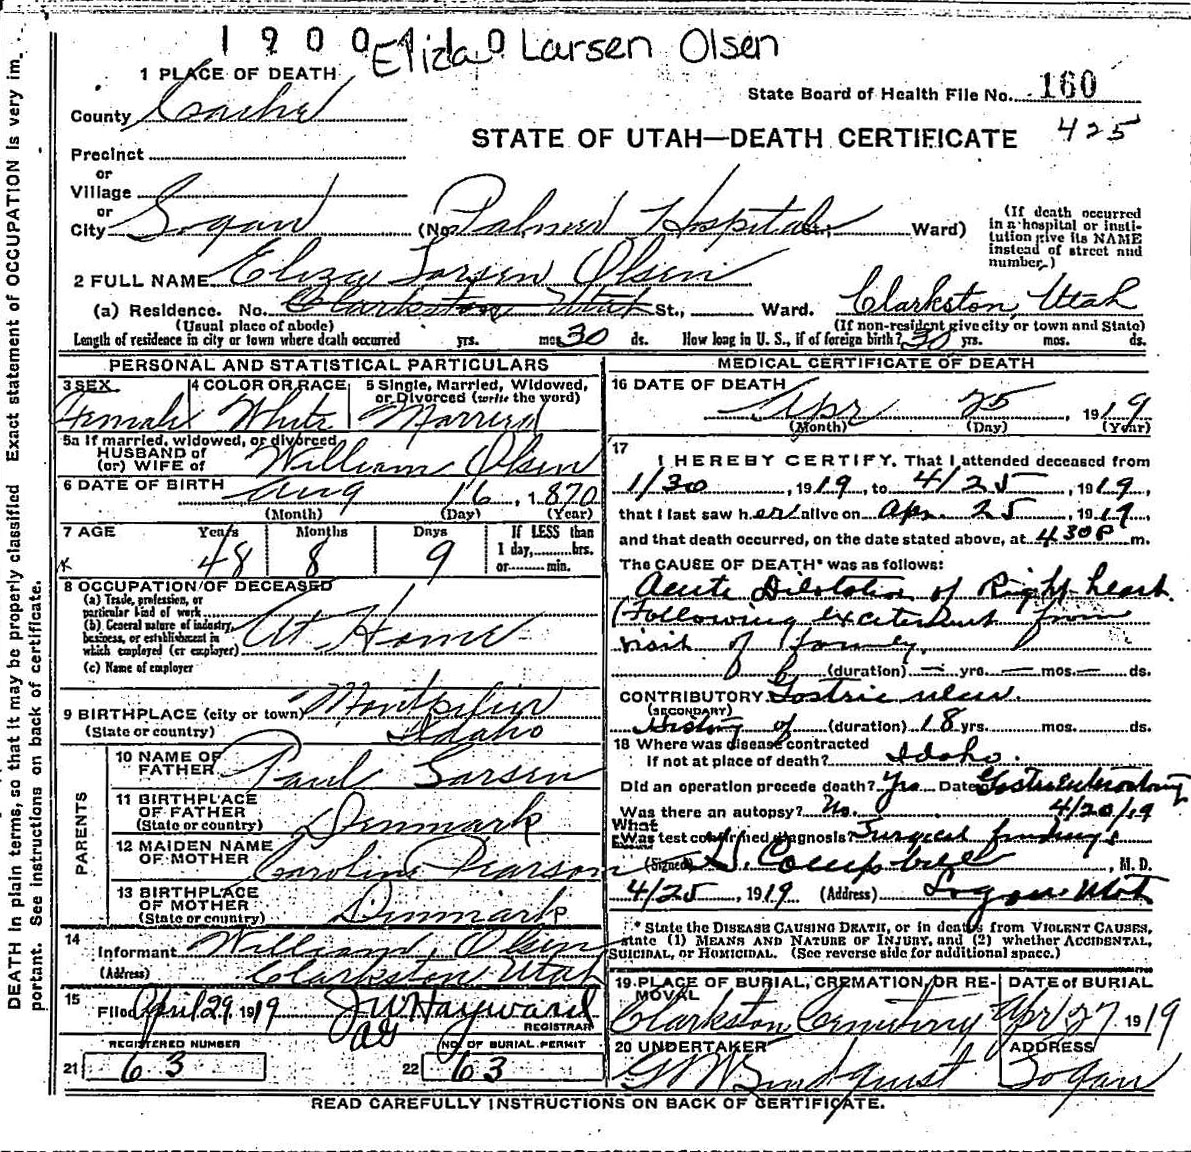 1 9 0 0 1 1 0
Eliza Larsen Olsen
1 PLACE OF DEATH
State Board of Health File No. 160
County Cache
425
STATE OF UTAH—DEATH CERTIFICATE
Precinct
or
Village
or
City Logan (No. Palmer Hospital, Ward)
(If death occurred in a hospital or institution give its NAME instead of street and number.)
2 FULL NAME Eliza Larsen Olsen
(a) Residence. No. Clarkston Utah St., Ward. Clarkston, Utah
(Usual place of abode) (If non-resident give city or town and State)
Length of residence in city or town where death occurred yrs. mos. 30 ds. How long in U. S., if of foreign birth? 30 yrs. mos. ds.
PERSONAL AND STATISTICAL PARTICULARS
3 SEX 4 COLOR OR RACE 5 Single, Married, Widowed, or Divorced (write the word)
Female White Married
5a If married, widowed, or divorced
HUSBAND of
(or) WIFE of William Olsen
6 DATE OF BIRTH Aug 16, 1870
(Month) (Day) (Year)
7 AGE Years Months Days If LESS than
48 8 9 1 day, hrs.
or min.
8 OCCUPATION OF DECEASED
(a) Trade, profession, or
particular kind of work
(b) General nature of industry,
business, or establishment in
which employed (or employer) At Home
(c) Name of employer
9 BIRTHPLACE (city or town) Montpelier
(State or country) Idaho
PARENTS
10 NAME OF
FATHER Paul Larsen
11 BIRTHPLACE
OF FATHER
(State or country) Denmark
12 MAIDEN NAME
OF MOTHER Caroline Pearson
13 BIRTHPLACE
OF MOTHER
(State or country) Denmark
14
Informant William Olsen
(Address) Clarkston Utah
15
Filed April 29, 1919 J W Hayward
REGISTRAR
REGISTERED NUMBER NO. OF BURIAL PERMIT
21 63 22 63
MEDICAL CERTIFICATE OF DEATH
16 DATE OF DEATH
Apr 25, 1919
(Month) (Day) (Year)
17
I HEREBY CERTIFY, That I attended deceased from
1/30, 1919, to 4/25, 1919,
that I last saw her alive on Apr. 25, 1919,
and that death occurred, on the date stated above, at 4 30 P m.
The CAUSE OF DEATH* was as follows:
Acute Dilatation of Right heart.
(Following excitement from
visit of family.
(duration) — yrs. — mos. — ds.
CONTRIBUTORY Gastric ulcer.
(SECONDARY)
History of (duration) 18 yrs. mos. ds.
18 Where was disease contracted
If not at place of death? Idaho.
Did an operation precede death? Yes Date of
Was there an autopsy? No. 4/20/19
What
Was test confirmed diagnosis? Surgical findings
(Signed) M. D.
4/25, 1919 (Address) Logan Utah
* State the DISEASE CAUSING DEATH, or in deaths from VIOLENT CAUSES,
state (1) MEANS AND NATURE OF INJURY, and (2) whether ACCIDENTAL,
SUICIDAL, or HOMICIDAL. (See reverse side for additional space.)
19 PLACE OF BURIAL, CREMATION, OR REMOVAL DATE of BURIAL
Clarkston Cemetery Apr 27 1919
20 UNDERTAKER ADDRESS
G W Lindquist Logan
READ CAREFULLY INSTRUCTIONS ON BACK OF CERTIFICATE.
DEATH in plain terms, so that it may be properly classified Exact statement of OCCUPATION is very im
portant. See instructions on back of certificate.